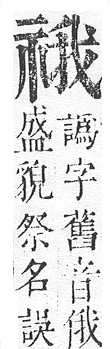 䄉
譌字舊音俄
盛貌祭名誤